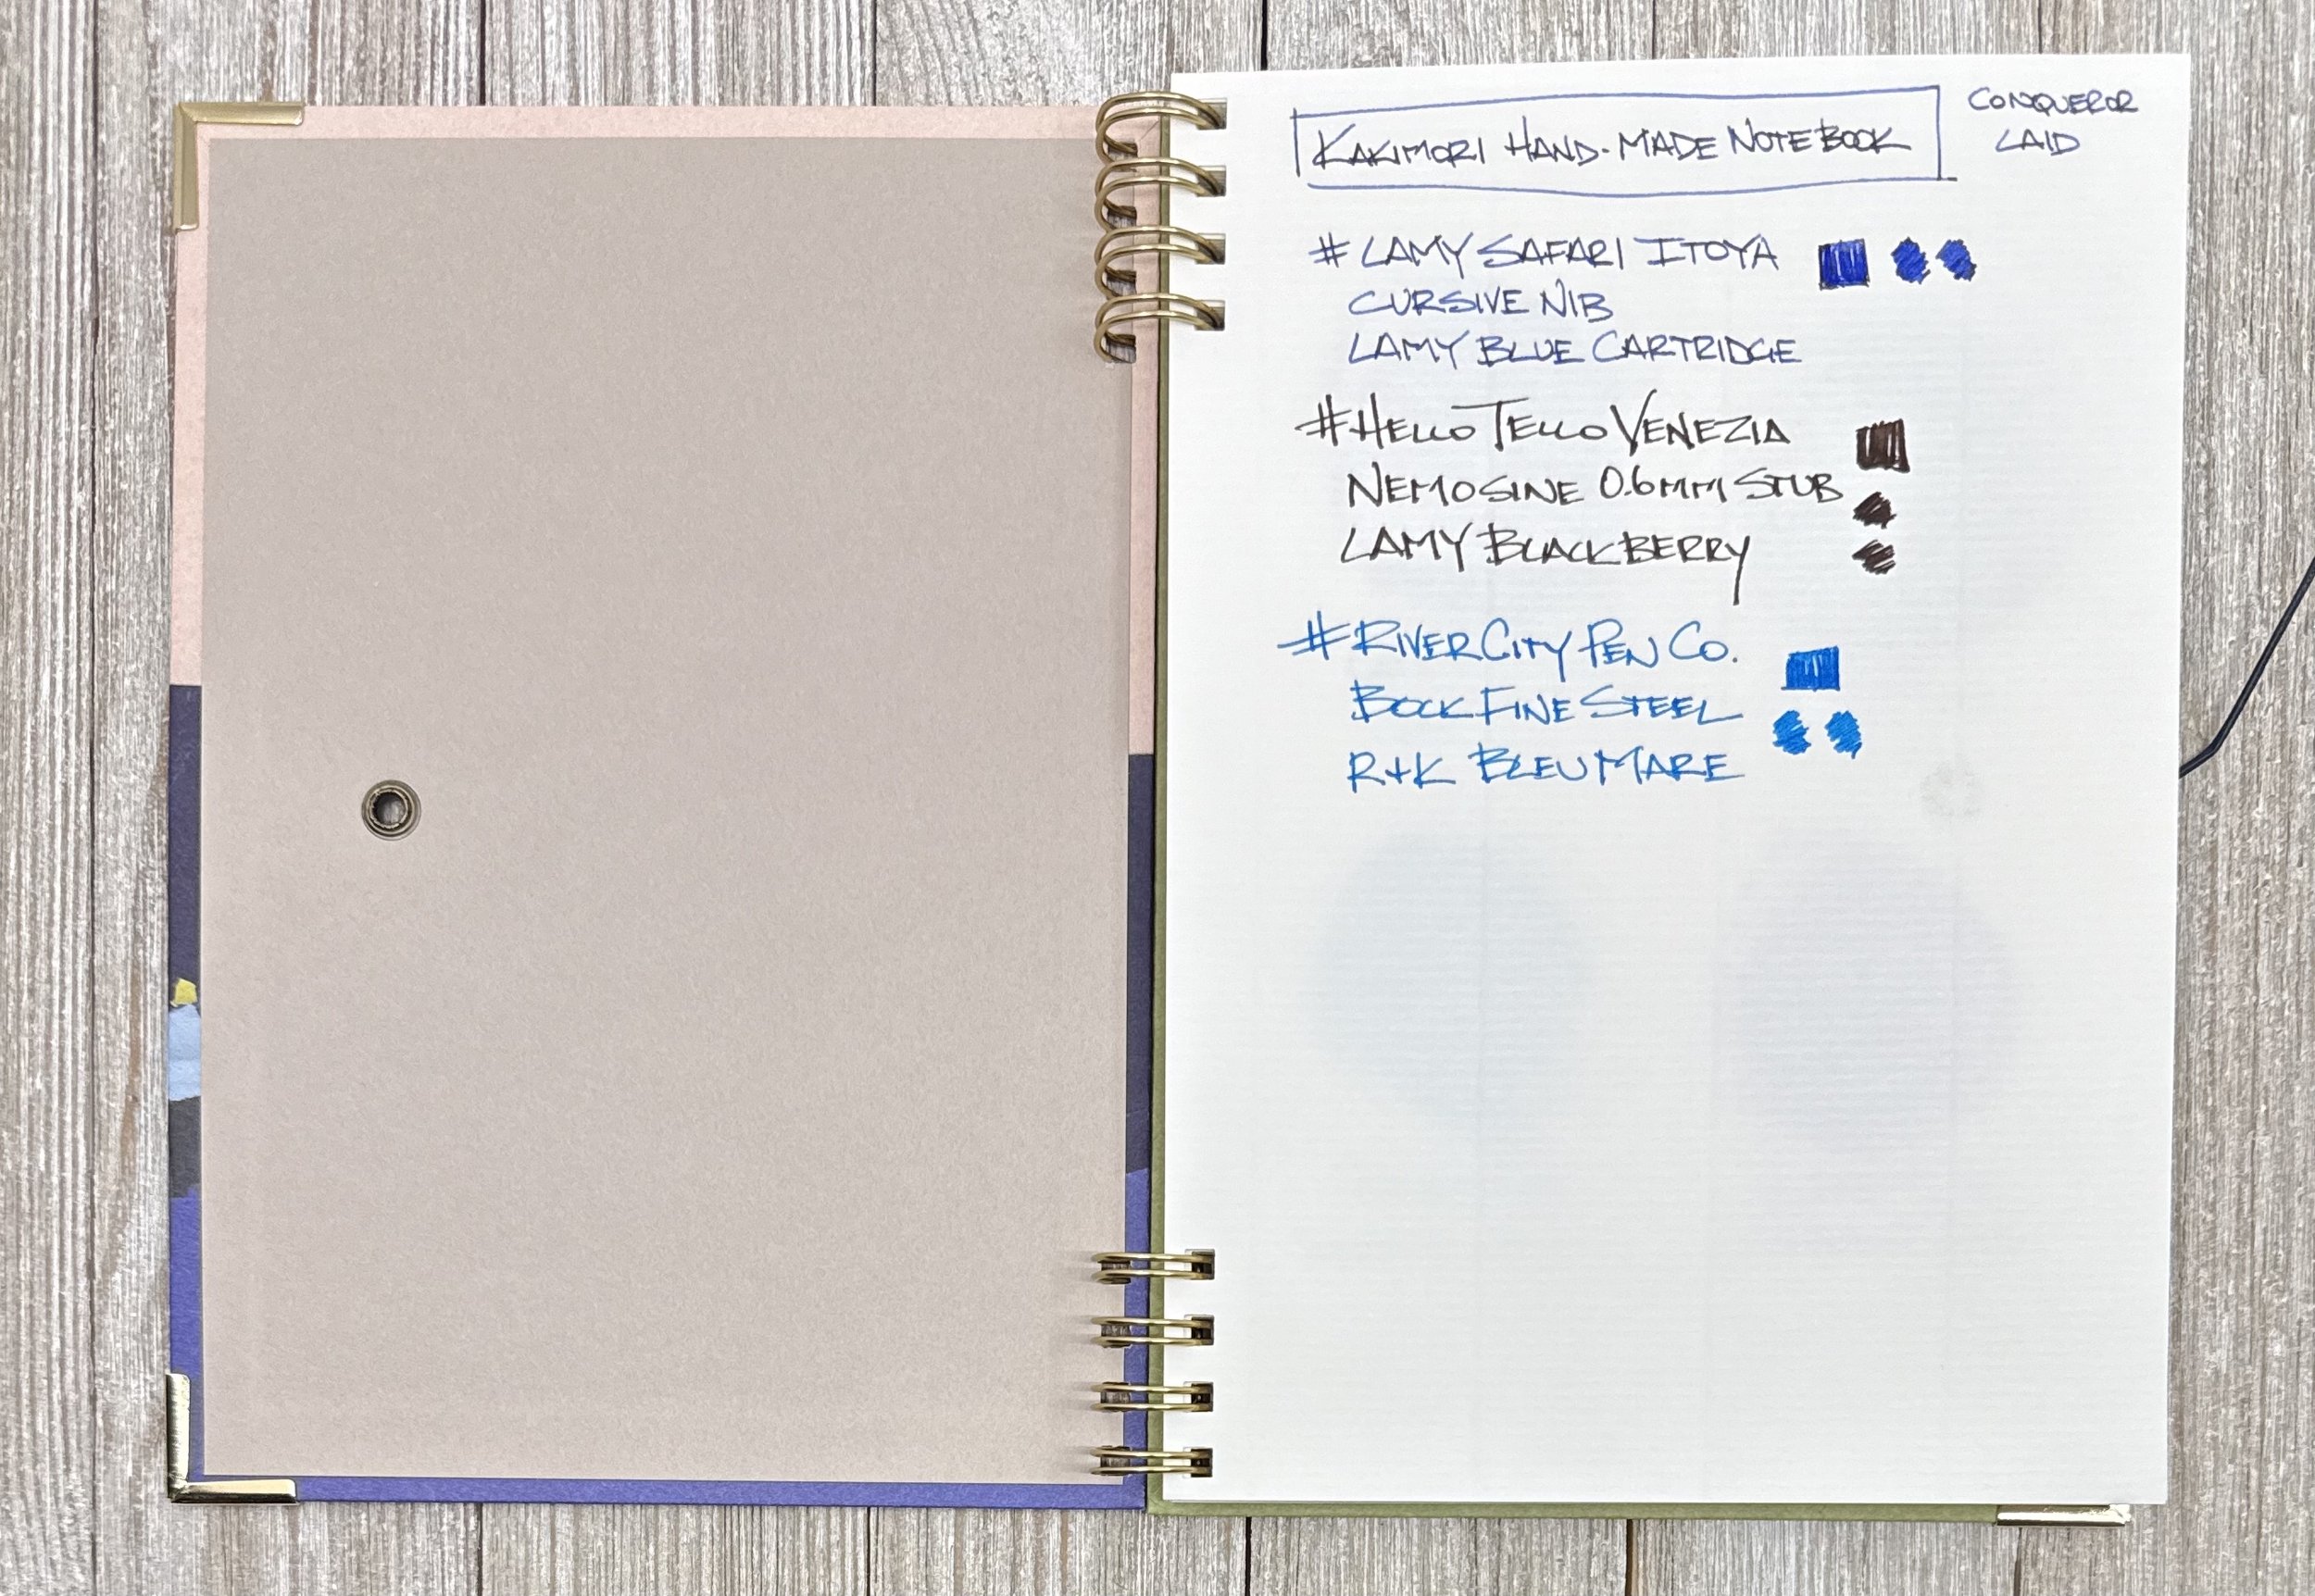 KAKIMORI HAND-MADE NOTEBOOK
CONQUEROR
LAID
# LAMY SAFARI ITOYA
CURSIVE NIB
LAMY BLUE CARTRIDGE
# HELLO TELLO VENEZIA
NEMOSINE 0.6MM STUB
LAMY BLACKBERRY
# RIVER CITY PEN CO.
BOCK FINE STEEL
R+K BLEU MARE